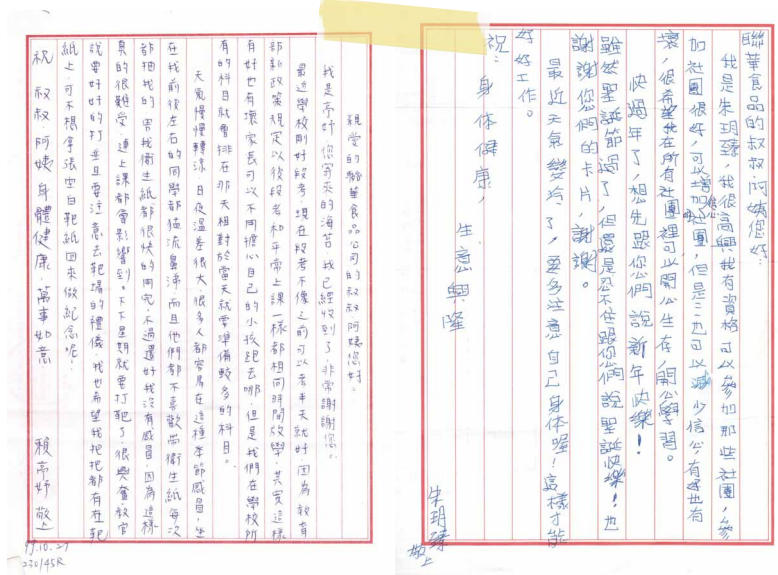 聯華食品的叔叔、阿姨您好:
我是朱玥臻,我很高興我有資格可以參加那些社團,參
加社團很好,可以增加社團,但是三也可以減少信公,有好也有
壞,很希望在所有社團裡可以開公生存,開公學習。
快過年了,想先跟您們說新年快樂!
雖然聖誕節過了,但還是忍不住跟你們說聖誕快樂!也
謝謝您們的卡片,謝謝。
最近天氣變冷了,要多注意自己身体喔!這樣才能
好好工作。
祝:身体健康,
生意興隆
朱玥臻
敬上
親愛的聯華食品公司的叔叔阿姨您好:
我是亭妤,您寄來的海苔,我已經收到了,非常謝謝您。
最近學校剛好段考,現在段考不像之前可以考半天就好,因為教育
部新政策規定以後段考和平常上課一樣都相同時間放學,其實這樣
有好也有壞,家長可以不用擔心自己的小孩跑去哪,但是我們在學校所
有的科目就會排在那天,相對於當天就要準備較多的科目。
天氣慢慢轉涼,日夜溫差很大,很多人都容易在這種季節感冒,坐
在我前後左右的同學都猛流鼻涕,而且他們都不喜歡帶衛生紙,每次
都捆我的,害我衛生紙都很快的用完,不過還好我沒有感冒,因為這樣
真的很難受,連上課都會影響到。下下星期就要打靶了,很興奮,教官
說要好好的打,並且要注意去靶場的禮儀,我也希望我把把都有在靶
紙上,可不想拿張空白靶紙回來做紀念呢!
祝 叔叔、阿姨身體健康,萬事如意
賴亭妤 敬上
99.10.27
230145R